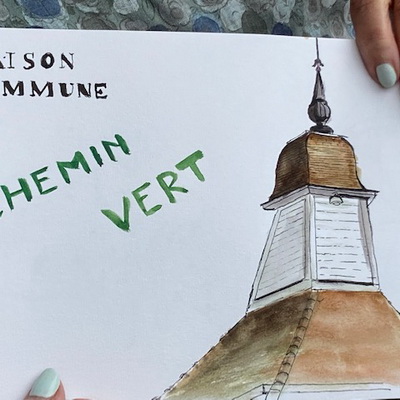 AISON
MMUNE
CHEMIN
VERT